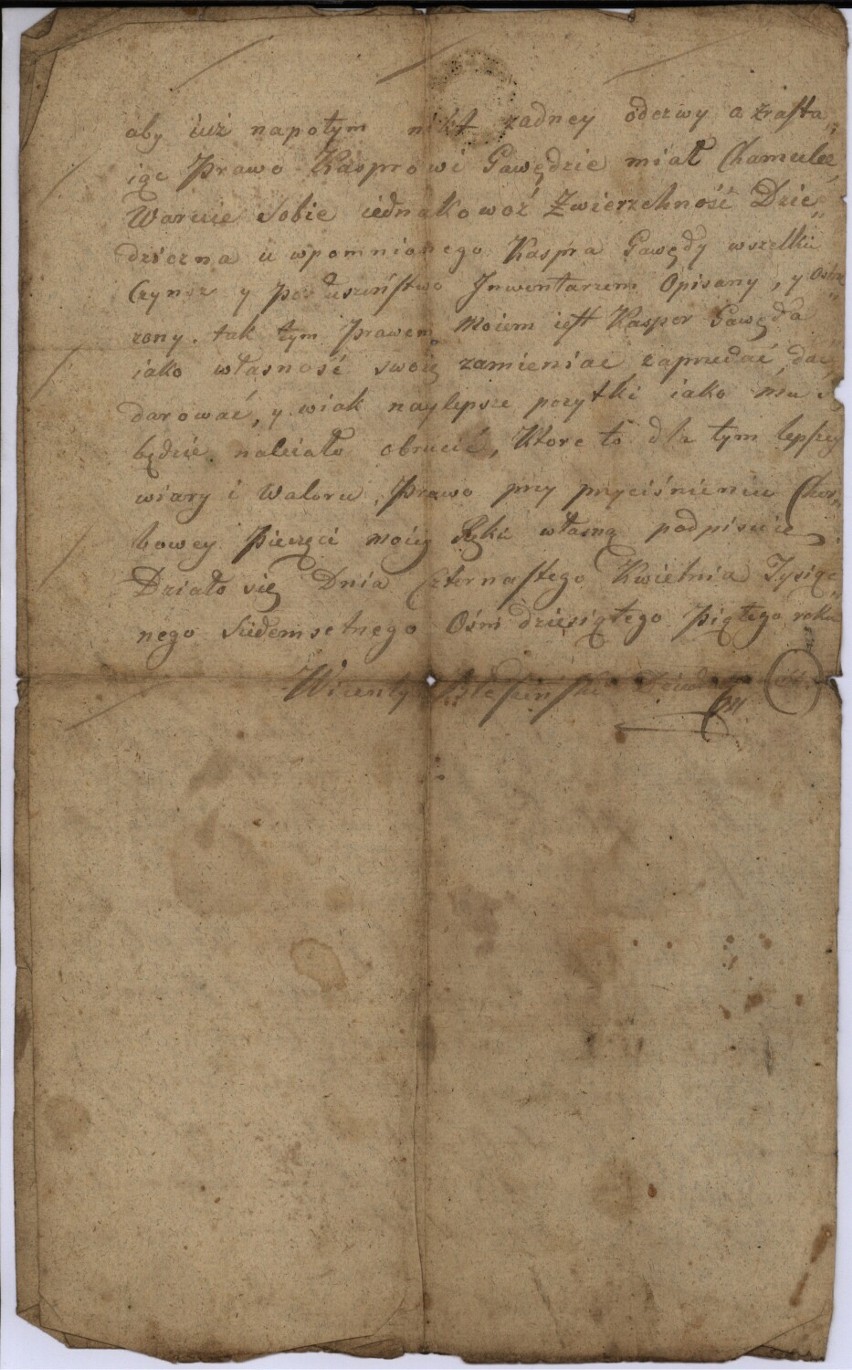 aby iuż napotym nikt żadney odezwy a
iąc Prawo Kasprowi Gawędzie miał
Waruię Sobie iednakowoż Zwierzchność Dzie„
dziczna u wpomnionego Kaspra Gawędy wszelki
Czynsz y Posłuszeństwo Inwentarzem Opisany, y
zony. tak tym Prawem Moiem iest Kasper Gawęda
iako własność swoię zamieniac zaprzedać, dać,
darować, y wiak naylepsze pozytki iako mu
będzie należało obrucić, Ktore to dla tym lepszey
wiary i Waloru, Prawo przy pryciśnieniu Cher„
bowey Pieczęci moiey Ręką własną podpisuię.
Działo się Dnia Czternastego Kwietnia Tysiąc„
nego Siedemsetnego Ośmdziesiątego Piątego roku
Wicenty